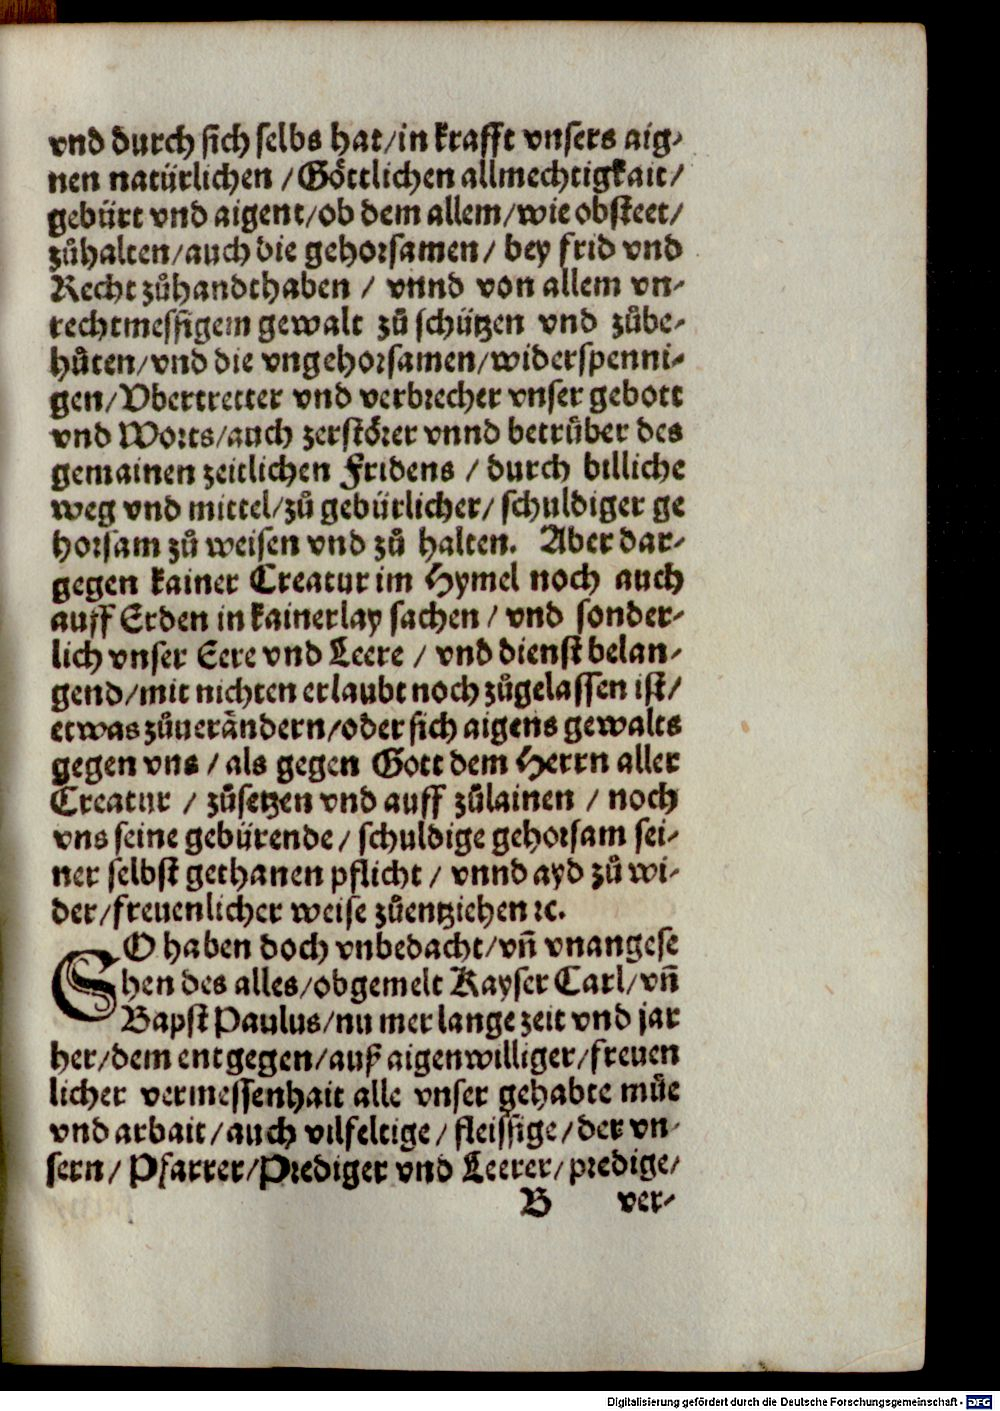 vnd durch sich selbs hat/in krafft vnsers aig-
nen natürlichen /Göttlichen allmechtigkait/
gebürt vnd aigent/ob dem allem/wie obsteet/
zůhalten/auch die gehorsamen/ bey frid vnd
Recht zůhandthaben / vnnd von allem vn-
rechtmessigem gewalt zů schützen vnd zůbe-
hůten/vnd die vngehorsamen/widerspenni-
gen/Vbertretter vnd verbrecher vnser gebott
vnd Worts/auch zerstörer vnnd betrůber des
gemainen zeitlichen Fridens / durch billiche
weg vnd mittel/zů gebürlicher/ schuldiger ge
horsam zů weisen vnd zů halten. Aber dar-
gegen kainer Creatur im Hymel noch auch
auff Erden in kainerlay sachen / vnd sonder-
lich vnser Eere vnd Leere / vnd dienst belan-
gend/mit nichten erlaubt noch zůgelassen ist/
etwas zůuerändern/oder sich aigens gewalts
gegen vns / als gegen Gott dem Herrn aller
Creatur / zůsetzen vnd auff zůlainen / noch
vns seine gebürende/ schuldige gehorsam sei-
ner selbst gethanen pflicht / vnnd ayd zů wi-
der/freuenlicher weise zůentziehen ꝛc.
SO haben doch vnbedacht/vn̄ vnangese
hen des alles/obgemelt Kayser Carl/vn̄
Bapst Paulus/nu mer lange zeit vnd jar
her/dem entgegen/auß aigenwilliger/freuen
licher vermessenhait alle vnser gehabte můe
vnd arbait/auch vilfeltige/ fleissige/der vn-
sern/ Pfarrer/Prediger vnd Leerer/predige/
B ver-
Digitalisierung gefördert durch die Deutsche Forschungsgemeinschaft - DFG